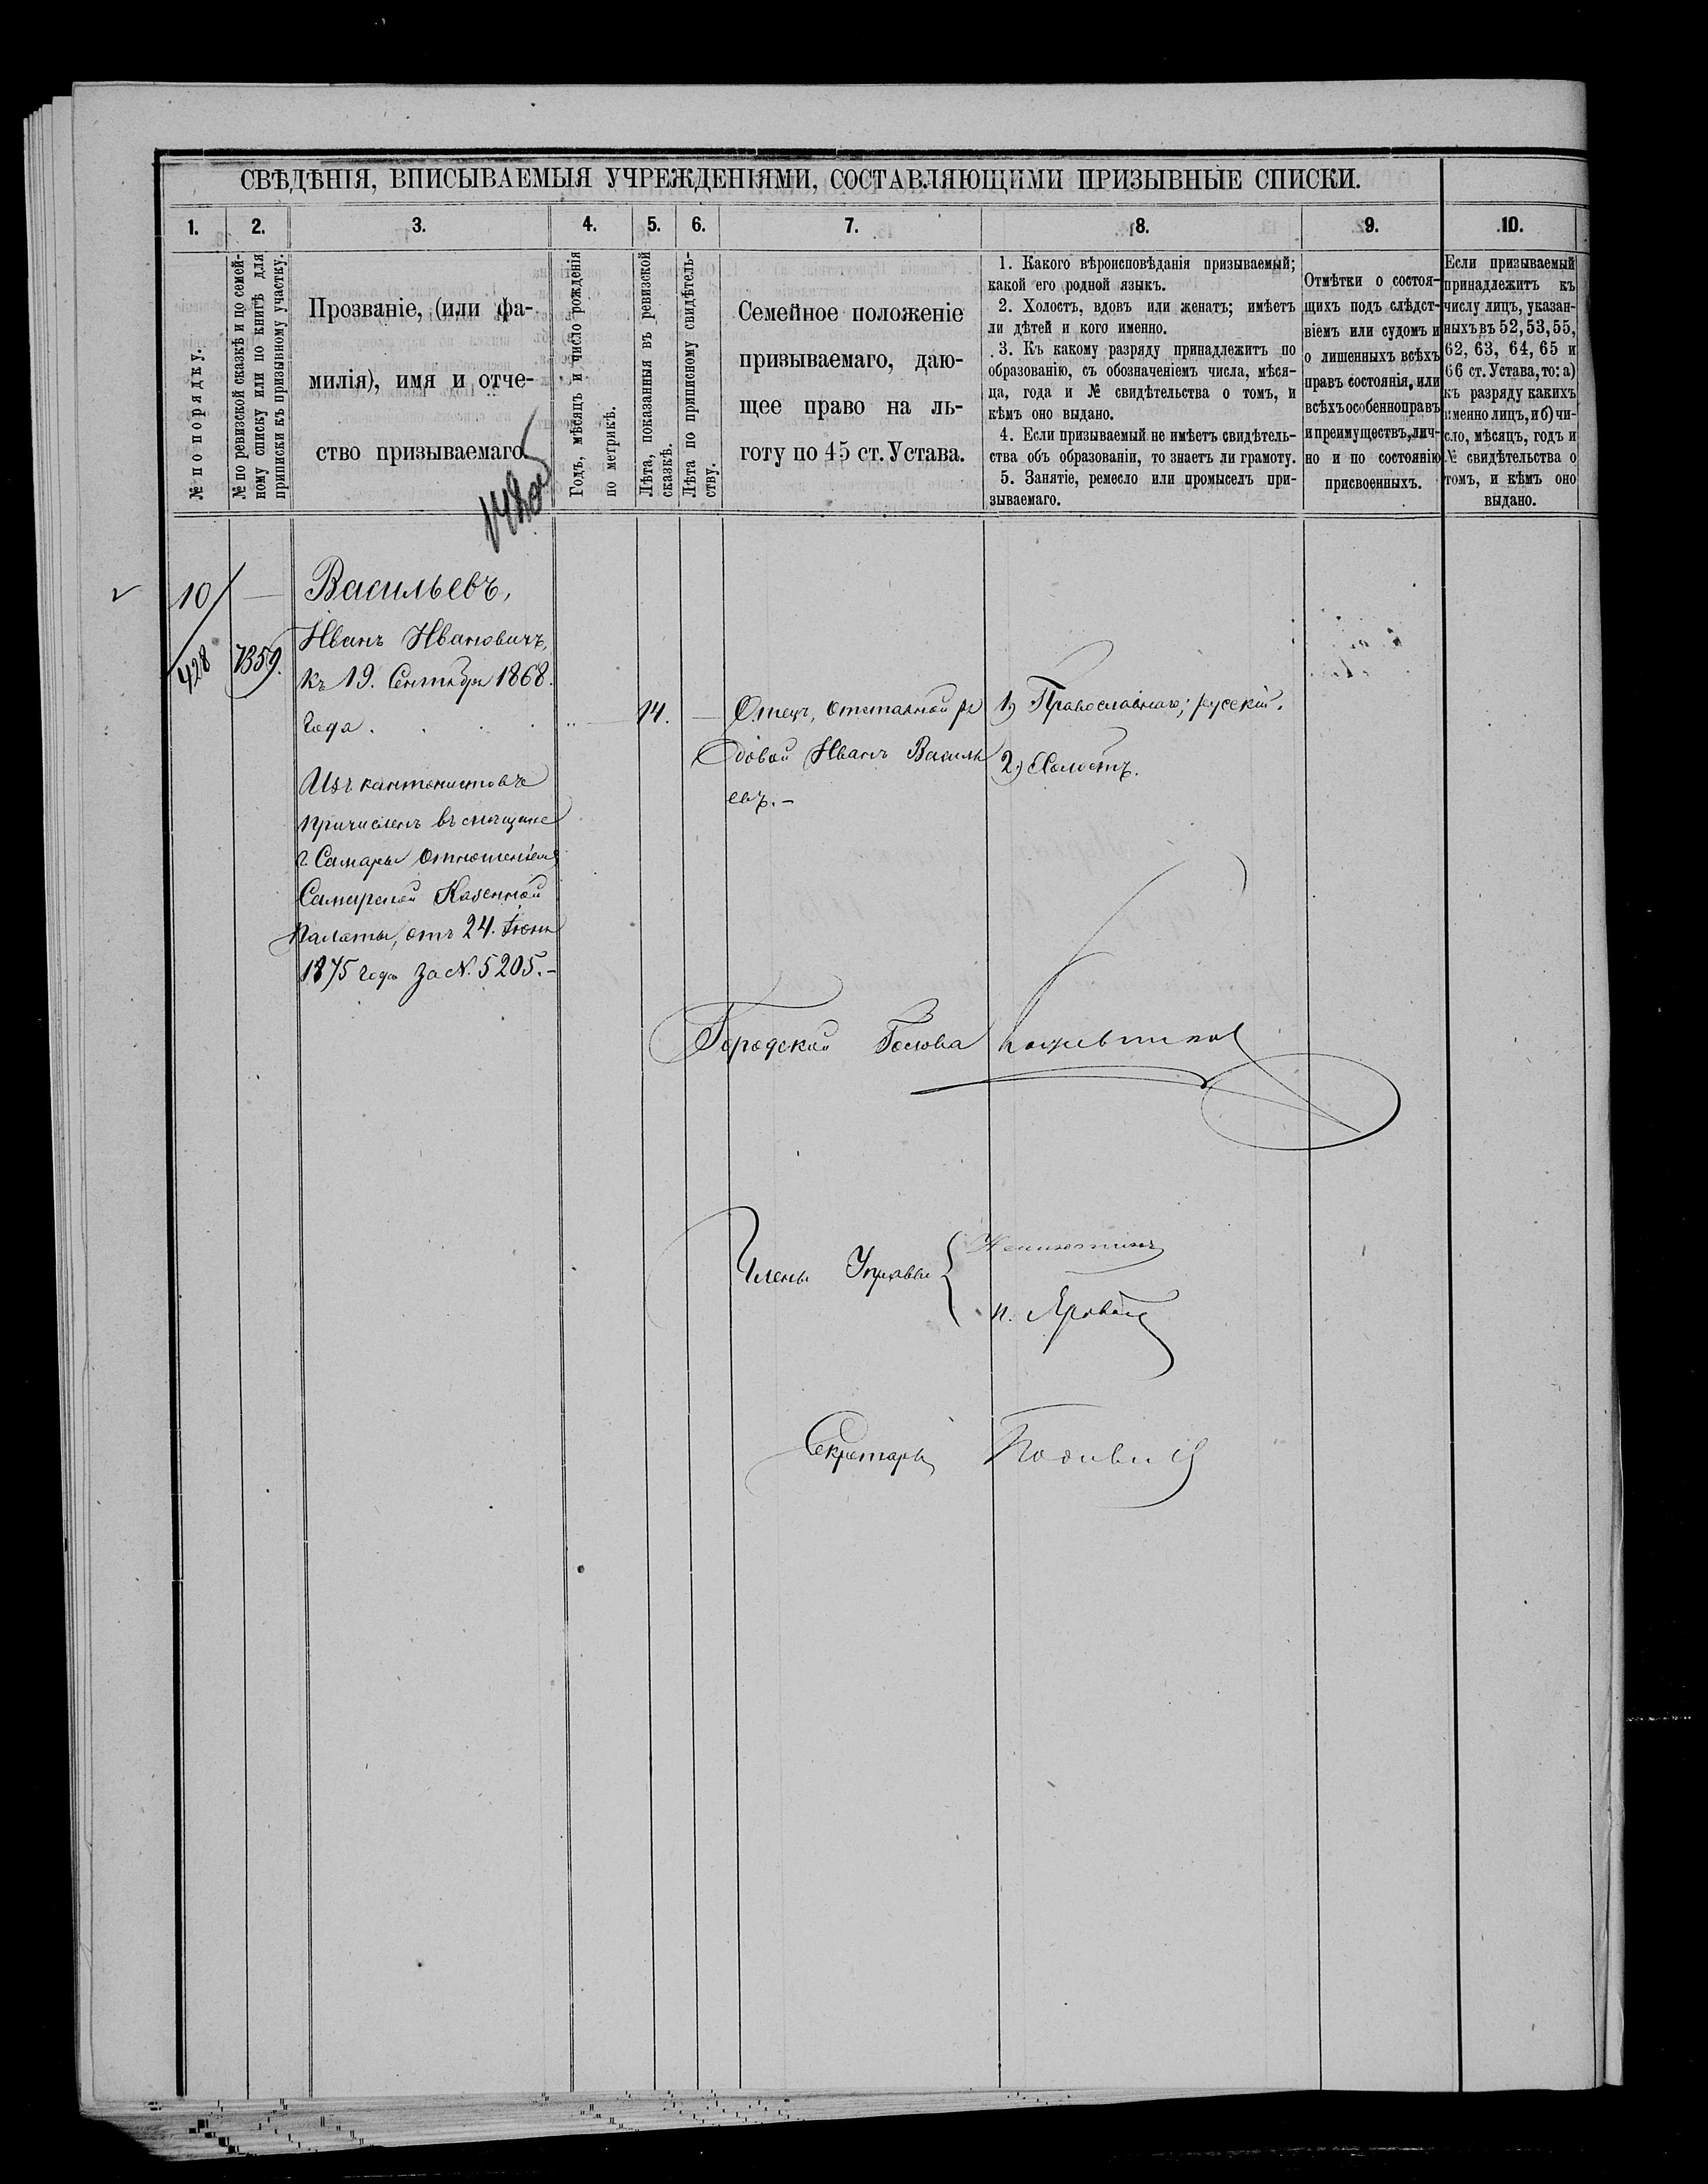 СВѢДѢНІЯ, ВПИСЫВАЕМЫЯ УЧРЕЖДЕНІЯМИ, СОСТАВЛЯЮЩИМИ ПРИЗЫВНЫЕ СПИСКИ.
1. 2. 3. 4. 5. 6. 7. 8. 9. 10.
№ по порядку.
№ по ревизской сказкѣ и по семей-
ному списку или по книгѣ для
приписки къ призывному участку.
Прозваніе, (или фа-
милія), имя и отче-
ство призываемаго.
Годъ, мѣсяцъ и число рожденія
по метрикѣ.
Лѣта, показанныя въ ревизской
сказкѣ.
Лѣта по приписному свидѣтель-
ству.
Семейное положеніе
призываемаго, даю-
щее право на ль-
готу по 45 ст. Устава.
1. Какого вѣроисповѣданія призываемый;
какой его родной языкъ.
2. Холостъ, вдовъ или женатъ; имѣетъ
ли дѣтей и кого именно.
3. Къ какому разряду принадлежитъ по
образованію, съ обозначеніемъ числа, мѣся-
ца, года и № свидѣтельства о томъ, и
кѣмъ оно выдано.
4. Если призываемый не имѣетъ свидѣтель-
ства объ образованіи, то знаетъ ли грамоту.
5. Занятіе, ремесло или промыселъ при-
зываемаго.
Отмѣтки о состоя-
щихъ подъ слѣдст-
віемъ или судомъ и
о лишенныхъ всѣхъ
правъ состоянія, или
всѣхъ особенноправъ
и преимуществъ, лич-
но и по состоянію
присвоенныхъ.
Если призываемый
принадлежитъ къ
числу лицъ, указан-
ныхъ въ 52, 53, 55,
62, 63, 64, 65 и
66 ст. Устава, то: а)
къ разряду какихъ
именно лицъ, и б) чи-
сло, мѣсяцъ, годъ и
№ свидѣтельства о
томъ, и кѣмъ оно
выдано.
10/428
1359.
Васильевъ,
Иванъ Ивановичъ,
къ 19. Сентября 1868.
года.
Изъ кантонистовъ
причисленъ въ мѣщане
г. Самары отношеніемъ
Самарской Казенной
Палаты, отъ 24. Іюня
1875 года за №. 5205.-
14.
Отецъ, отставной ря
довой Иванъ Василь
евъ.-
1) Православнаго; русскій.
2) Холостъ.
Городской Голова Кожевников
Члены Управы
Н. Яровой
Секретарь